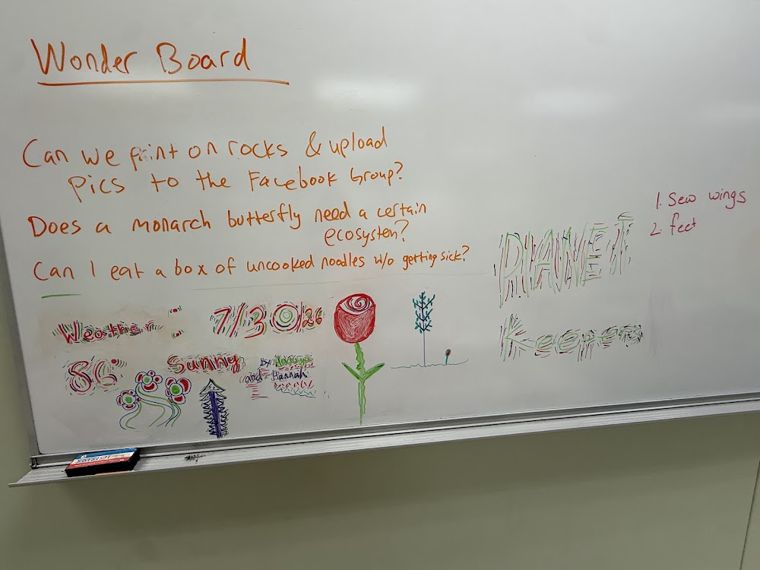 Wonder Board
Can we paint on rocks & upload
pics to the Facebook Group?
Does a monarch butterfly need a certain
ecosystem?
Can I eat a box of uncooked noodles w/o getting sick?
Weather:
7/30/26
86° Sunny
by:
and Hannah
PLANET
Keepers
1. Sew wings
2. feet